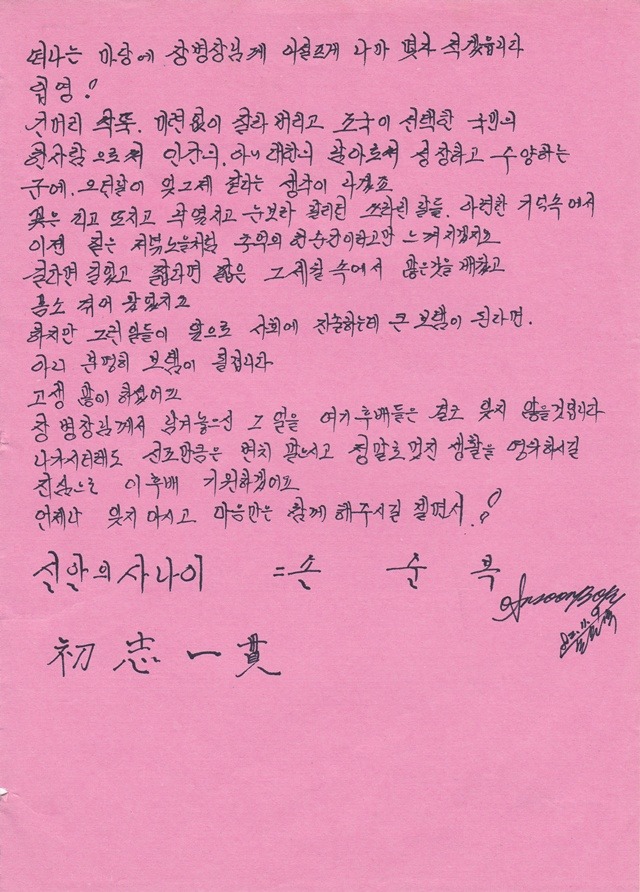 떠나는 마당에 장병장님께 어설프게 나마 몇자 적겠읍니다
급명!
긴머리 싹뚝. 미련없이 잘라 버리고 조국이 선택한 국민의
한사람으로써 인간의. 아니 대한의 남아로써 성장하고 수양하는
군에. 오던날이 엊그제 같다는 생각이 나겠죠
꽃은 피고 또지고 낙엽지고 눈보라 휠리던 쓰라린 날들. 아련한 기억속에서
이젠 짙은 저녁노을처럼 추억의 한순간이라고만 느껴지겠지요
길다면 길었고 짧다면 짧은 그세월 속에서 많은것을 깨닫고
몸소 겪어 왔겠지요
하지만 그런일들이 앞으로 사회에 진출하는데 큰 보템이 된다면.
아니 분명히 보템이 될겁니다
고생 많이 하셨어요
장병장님께서 남겨놓으신 그 일을 여기 후배들은 결코 잊지 않을것입니다
나가시더래도 선포만큼은 변치 말으시고 정말로 멋진 생활을 영위하시길
진심으로 이후배 기원하겠어요
언제나 잊지 마시고 마음만은 함께 해주시길 빌면서.!
신안의 사나이 = 손 순 복
初 志 一 貫